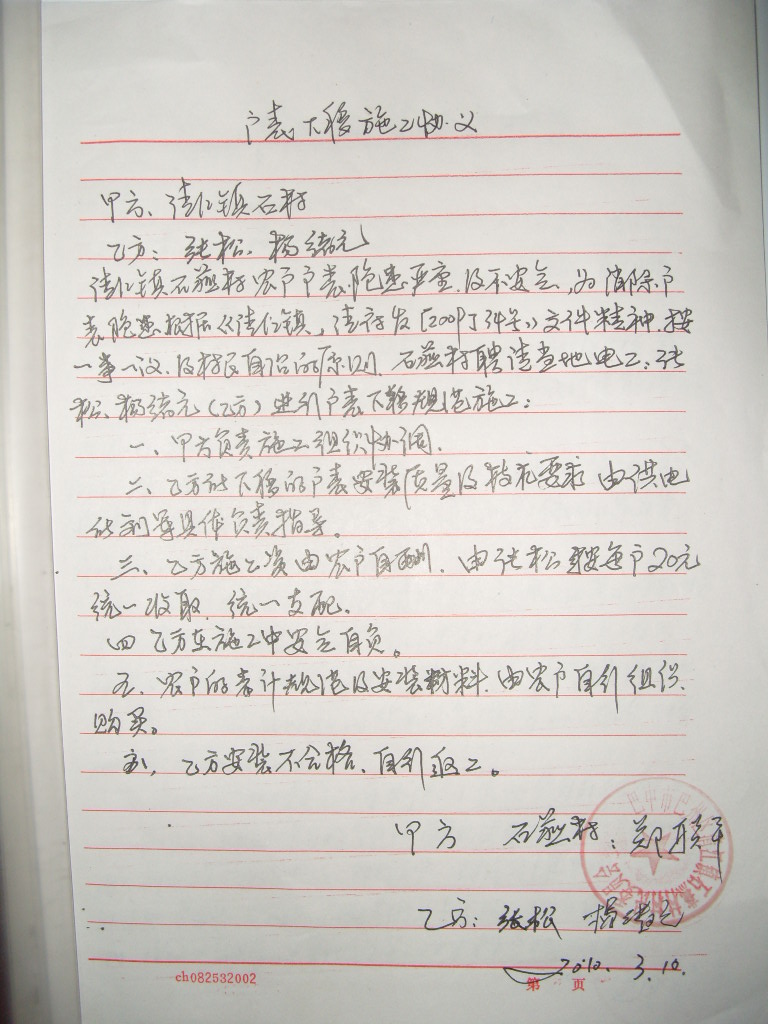 户表下移施工协议
甲方、清江镇石 村
乙方：张松、杨绪元
清江镇石 村农户户表隐患严重，及不安全，为消除户
表隐患根据《清江镇，清 发[2009]1 件 》文件精神，按
一事一议、及村民自治的原则、石 村聘请当地电工：张
松、杨绪元（乙方）进行户表下移规范施工：
一、甲方负责施工组织协调。
二、乙方对下移的户表安装质量及技术要求由供电
 具体负责指导。
三、乙方施工资由农户自酬，由张松按每户20元
统一收取，统一支配。
四 乙方在施工中安全自负。
五、农户的表计规范及安装材料、由农户自行组织、
购买。
六、乙方安装不合格、自行返工。
甲方 石 村：郑联平
乙方：张松 杨绪元
2010. 3.10.
ch082532002
第 页